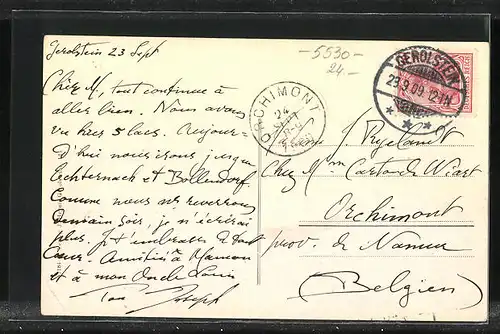 Gerolstein 23 Sept
Cher M, tout continue à
aller bien. Nous avons
vu hier 5 lacs. Aujour-
d'hui nous irons jusque
Echternach et Bollendorf.
Comme nous nous reverrons
demain soir, je n'écrirai
plus. Je t'embrasse de tout
Cœur. Amitiés à Maman
et à mon Oncle Louis
Ton Joseph
-5530-
24-
ORCHIMONT
24
SEPT
GEROLSTEIN
23.9.09. 12-1N
Chez Mme Carton de Wiart
Orchimont
prov. de Namur
(Belgien)